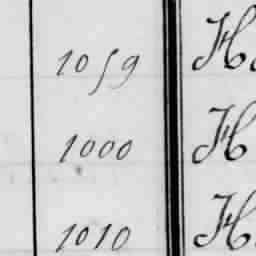 1059 H
1000 H
1010 H